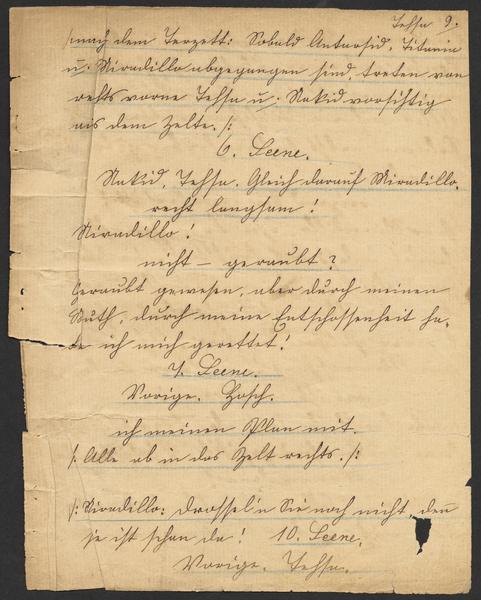 Tessa 9.
/: nach dem Terzett: Sobald Antarsid, Titania
u. Miradillo abgegangen sind, treten von
rechts vorne Tessa u. Nakid vorsichtig
aus dem Zelte. :/
6. Scene.
Nakid, Tessa. Gleich darauf Miradillo.
recht langsam!
Miradillo!
nicht – geraubt?
Geraubt gewesen, aber durch meinen
Muth, durch meine Entschossenheit ha-
be ich mich gerettet!
7. Scene.
Vorige. Bosch.
ich meinen Plan mit.
/: Alle ab in das Zelt rechts. :/
/: Miradillo: drossel'n Sie noch nicht, den̄
sie ist schon da! 10. Scene.
Vorige. Tessa.